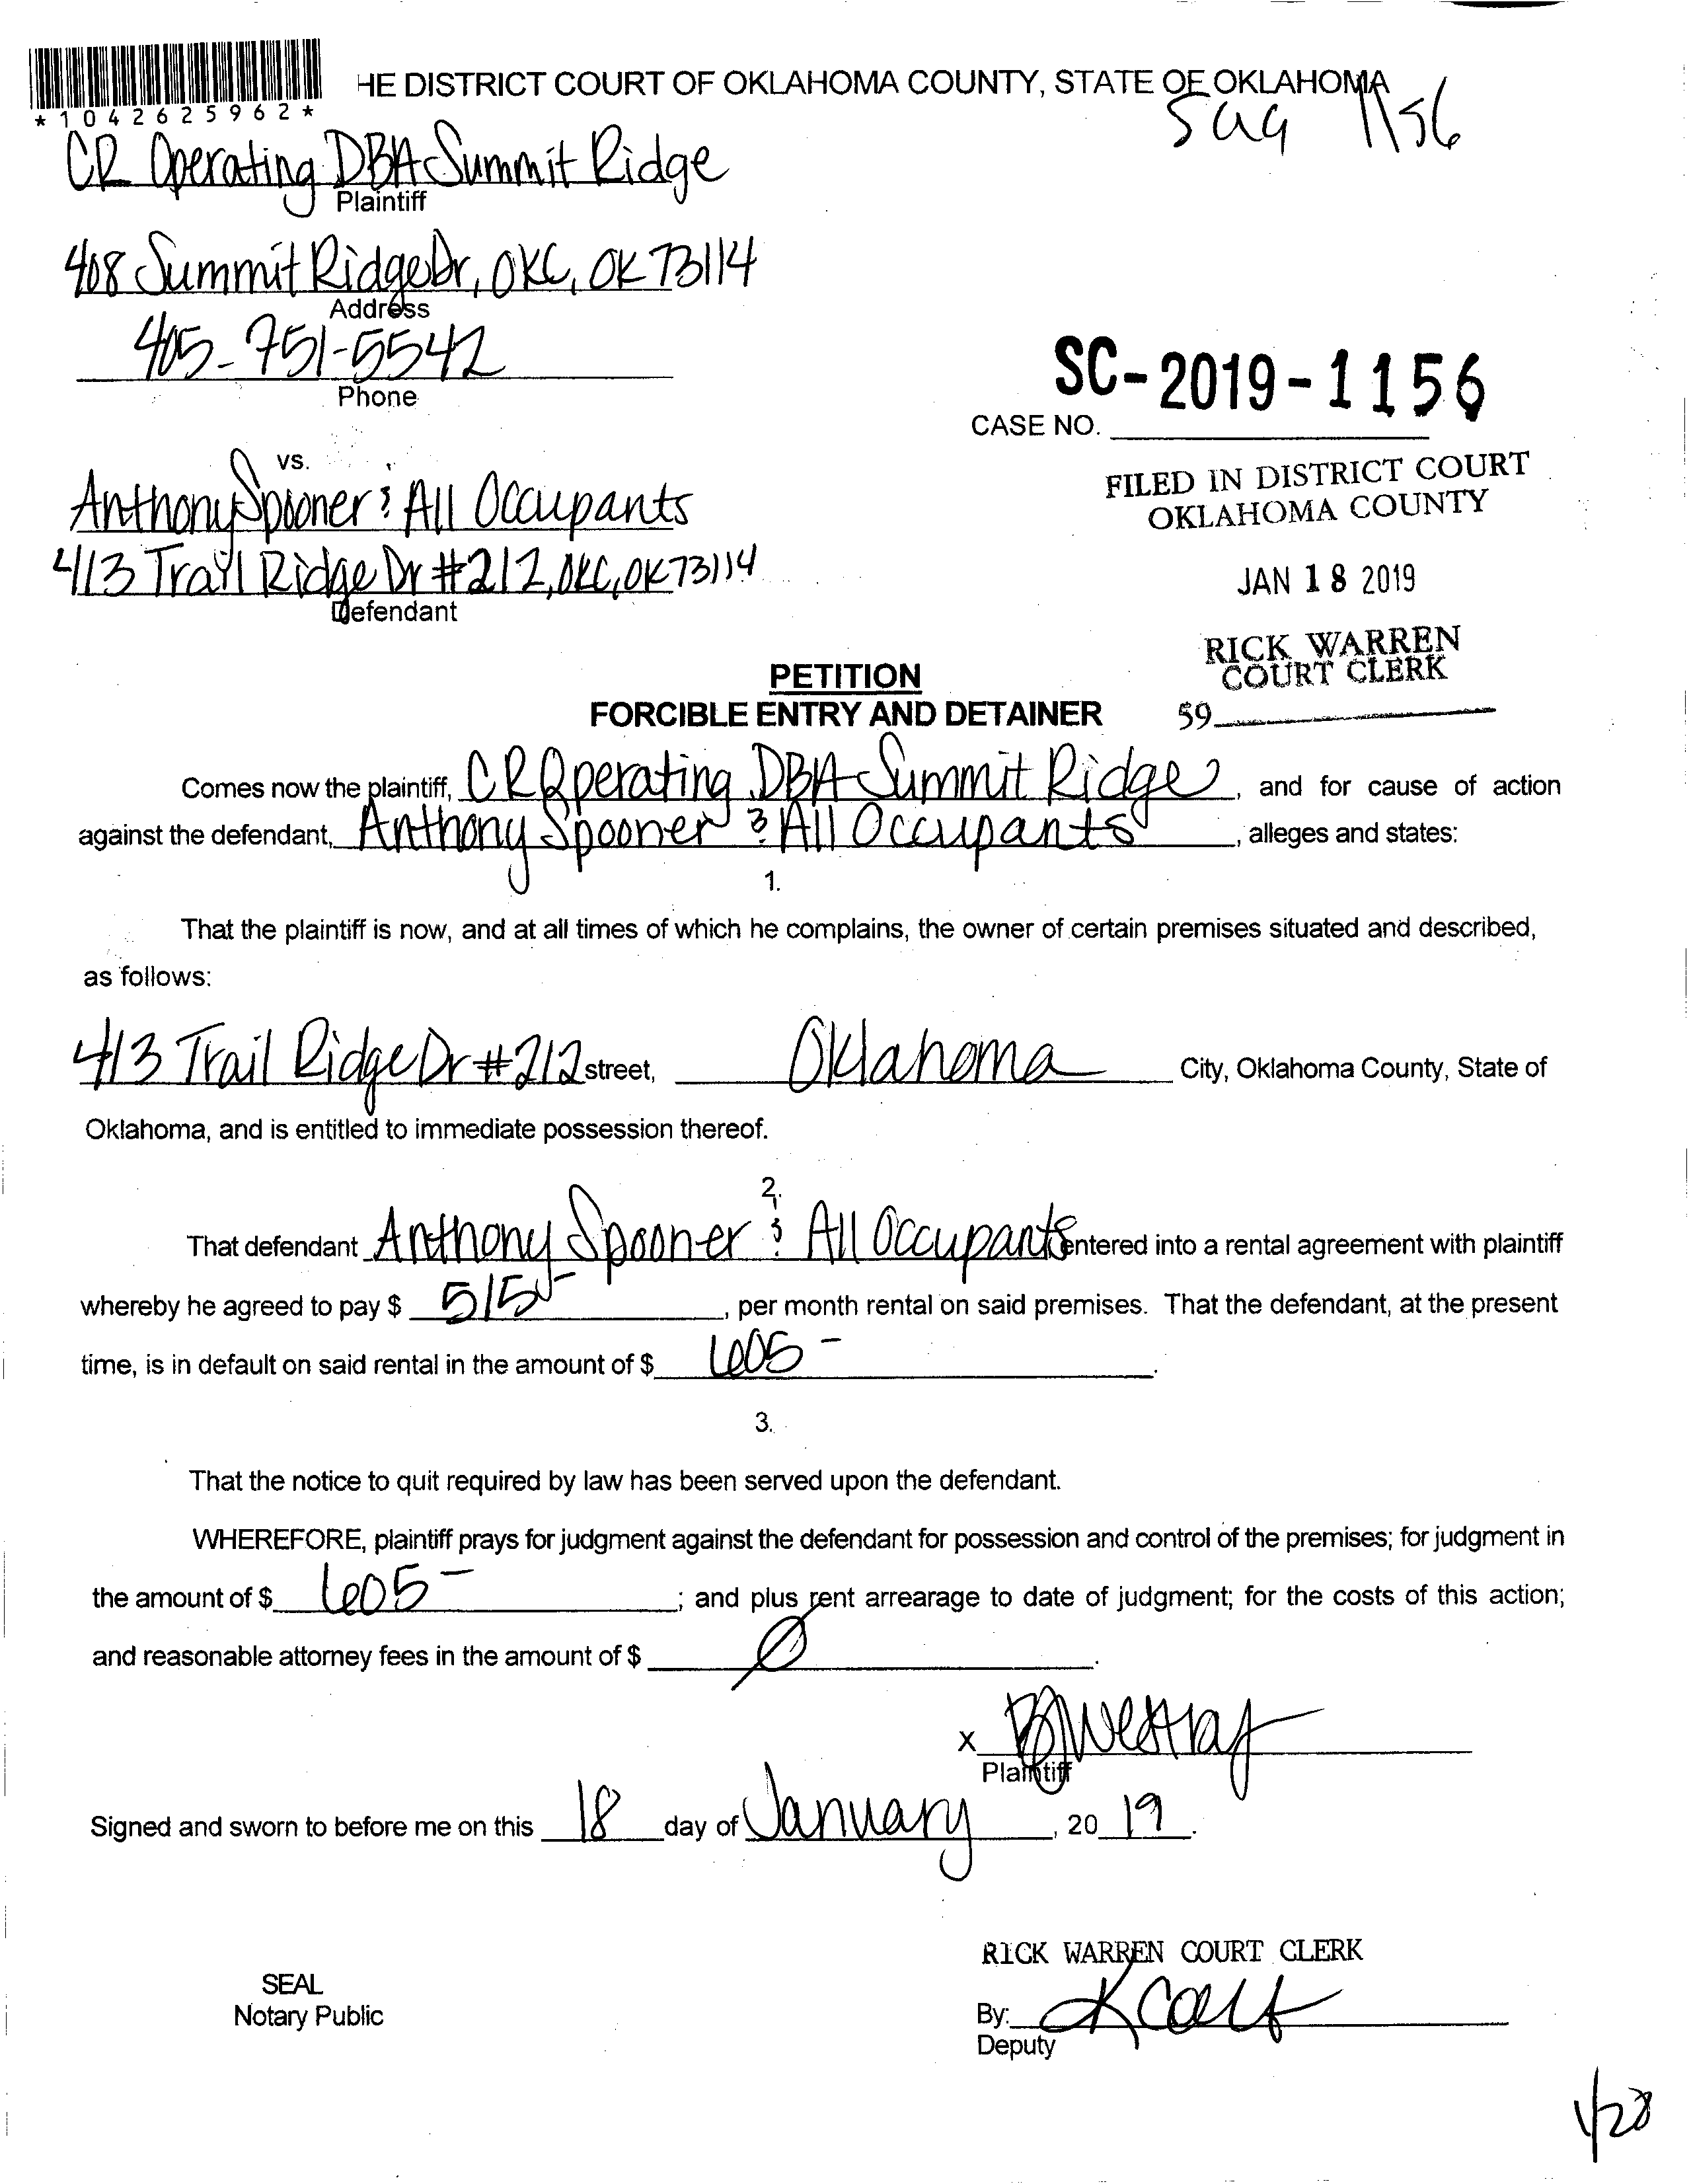 HE DISTRICT COURT OF OKLAHOMA COUNTY, STATE OF OKLAHOMA
*1042625962*
1156
CR Operating DBA Summit Ridge
Plaintiff
408 Summit Ridge Dr, OKC, OK 73114
Address
405-751-5542
Phone
SC-2019-1156
CASE NO.
vs.
FILED IN DISTRICT COURT
OKLAHOMA COUNTY
Anthony Spooner & All Occupants
413 Trail Ridge Dr #212, OKC, OK 73114
Defendant
JAN 18 2019
RICK WARREN
COURT CLERK
59
PETITION
FORCIBLE ENTRY AND DETAINER
Comes now the plaintiff, CR Operating DBA Summit Ridge, and for cause of action
against the defendant, Anthony Spooner & All Occupants, alleges and states:
1.
That the plaintiff is now, and at all times of which he complains, the owner of certain premises situated and described,
as follows:
413 Trail Ridge Dr #212 street, Oklahoma City, Oklahoma County, State of
Oklahoma, and is entitled to immediate possession thereof.
2.
That defendant Anthony Spooner & All Occupants entered into a rental agreement with plaintiff
whereby he agreed to pay $ 515-, per month rental on said premises. That the defendant, at the present
time, is in default on said rental in the amount of $ 605-.
3.
That the notice to quit required by law has been served upon the defendant.
WHEREFORE, plaintiff prays for judgment against the defendant for possession and control of the premises; for judgment in
the amount of $ 605-; and plus rent arrearage to date of judgment; for the costs of this action;
and reasonable attorney fees in the amount of $ Ø.
X
Plaintiff
Signed and sworn to before me on this 18 day of January, 20 19.
RICK WARREN COURT CLERK
SEAL
Notary Public
By:
Deputy
1/28